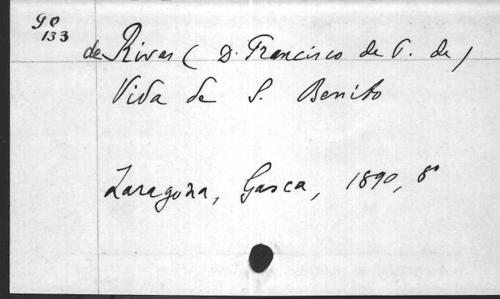 90
133
de Rivas ( D. Francisco de P. de )
Vida de S. Benito
Zaragoza, Gasca, 1890, 8º